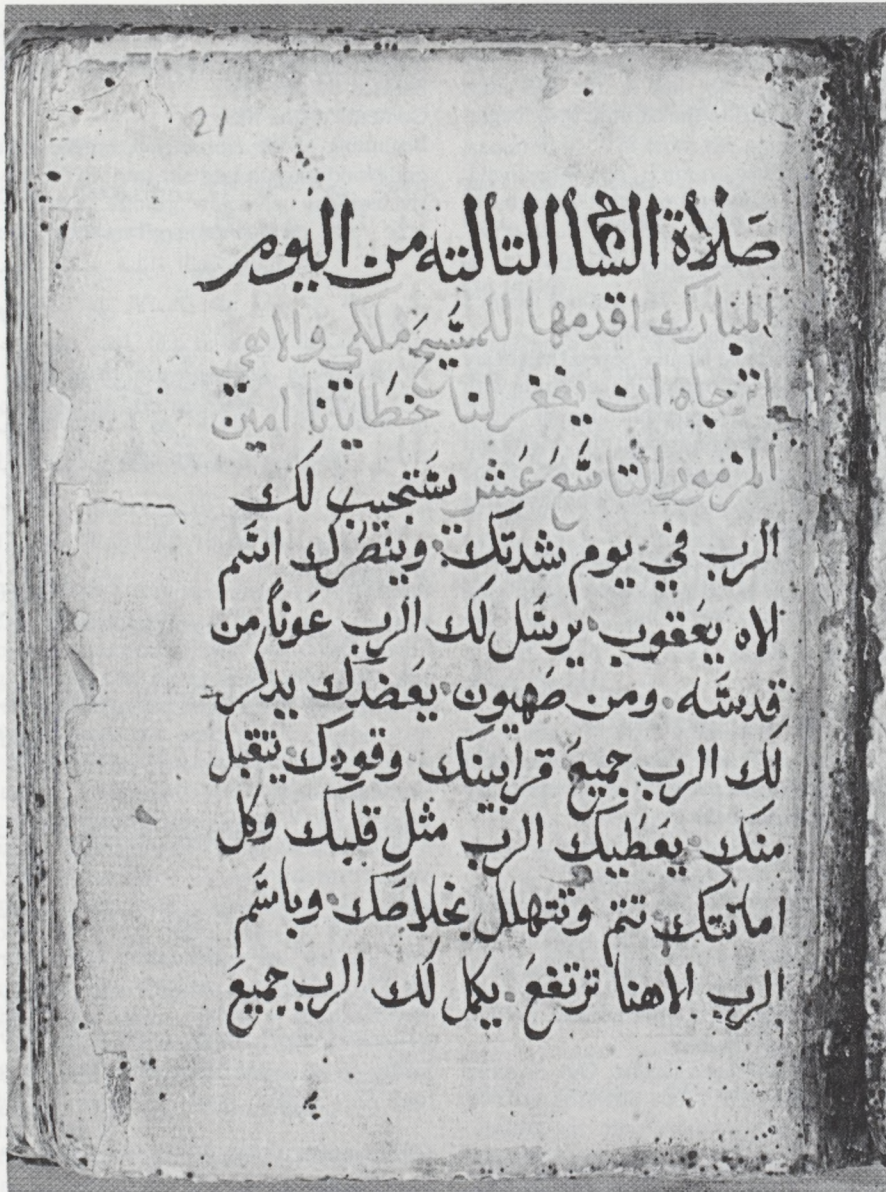 21
صلاة الساعة التالته من اليوم
المبارك اقدمها للمسيح ملكي والاهي
اترجاه ان يغفر لنا خطايانا امين
المزمور التاسع عشر يستجيب لك
الرب في يوم شدتك وينصرك اسم
الاه يعقوب يرسل لك الرب عوناً من
قدسه ومن صهيون يعضدك يذكر
لك الرب جميع قرابينك وقودك يتقبل
منك يعطيك الرب مثل قلبك وكل
امانتك تتم وتتهلل بخلاصك وباسم
الرب الاهنا ترتفع يكمل لك الرب جميع